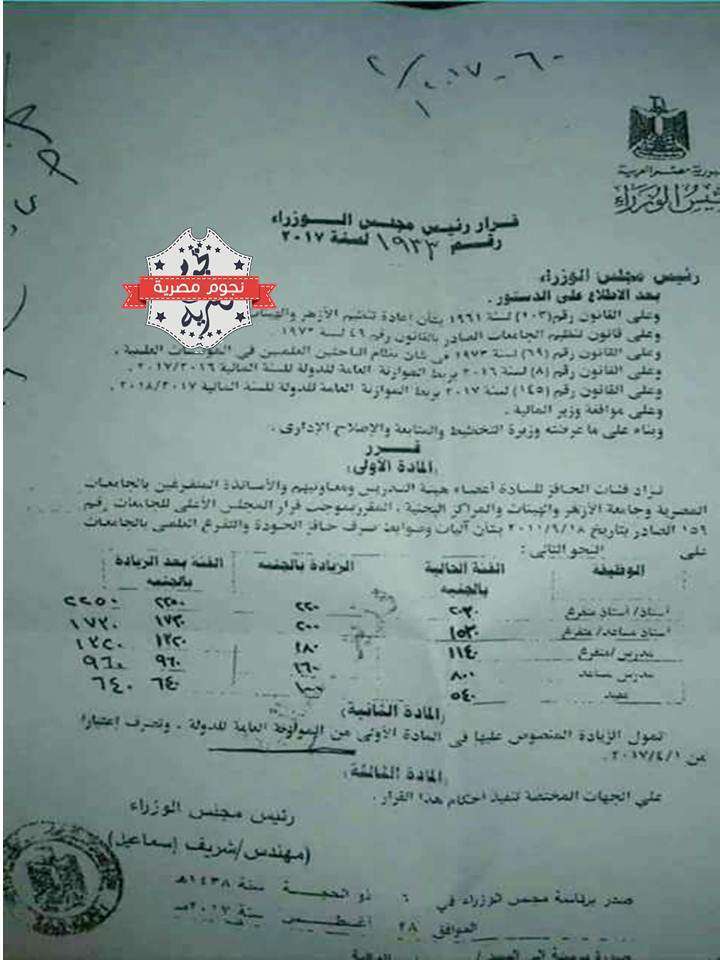 ٢٠١٧ - ٦٠
جمهورية مصر العربية
رئيس الوزراء
قرار رئيس مجلس الوزراء
رقم ١٩٣٣ لسنة ٢٠١٧
نجوم مصرية
رئيس مجلس الوزراء
بعد الاطلاع على الدستور .
وعلى القانون رقم (١٠٣) لسنة ١٩٦١ بشأن إعادة تنظيم الأزهر والهيئات
وعلى قانون تنظيم الجامعات الصادر بالقانون رقم ٤٩ لسنة ١٩٧٢
وعلى القانون رقم (٦٩) لسنة ١٩٧٣ فى شأن نظام الباحثين العلميين فى المؤسسات العلمية .
وعلى القانون رقم (٨) لسنة ٢٠١٦ بربط الموازنة العامة للدولة للسنة المالية ٢٠١٧/٢٠١٦ .
وعلى القانون رقم (١٤٥) لسنة ٢٠١٧ بربط الموازنة العامة للدولة للسنة المالية ٢٠١٨/٢٠١٧ .
وعلى موافقة وزير المالية .
وبناء على ما عرضته وزيرة التخطيط والمتابعة والإصلاح الإدارى .
قرر
(المادة الأولى)
تزاد فئات الحافز للسادة أعضاء هيئة التدريس ومعاونيهم والأساتذة المتفرغين بالجامعات
المصرية وجامعة الأزهر والهيئات والمراكز البحثية ، المقرر بموجب قرار المجلس الأعلى للجامعات رقم
١٥٩ الصادر بتاريخ ٢٠١١/٦/١٨ بشأن آليات وضوابط صرف حافز الجودة والتفرغ العلمى بالجامعات
على النحو التالى :
الوظيفة الفئة الحالية بالجنيه الزيادة بالجنيه الفئة بعد الزيادة بالجنيه
أستاذ/ أستاذ متفرغ ٢٠٣٠ ٢٢٠ ٢٢٥٠ ٢٢٥٠
أستاذ مساعد/ متفرغ ١٥٣٠ ٢٠٠ ١٧٣٠ ١٧٣٠
مدرس/متفرغ ١١٤٠ ١٨٠ ١٣٢٠ ١٣٢٠
مدرس مساعد ٨٠٠ ١٦٠ ٩٦٠ ٩٦٠
معيد ٥٤٠ ١٠٠ ٦٤٠ ٦٤٠
(المادة الثانية)
تمول الزيادة المنصوص عليها فى المادة الأولى من الموازنة العامة للدولة ، وتصرف إعتباراً
من ٢٠١٧/٤/١ .
(المادة الثالثة)
على الجهات المختصة تنفيذ أحكام هذا القرار .
رئيس مجلس الوزراء
(مهندس/شريف إسماعيل)
صدر برئاسة مجلس الوزراء فى ٦ ذو الحجة سنة ١٤٣٨هـ
الموافق ٢٨ أغسطس سنة ٢٠١٧مـ